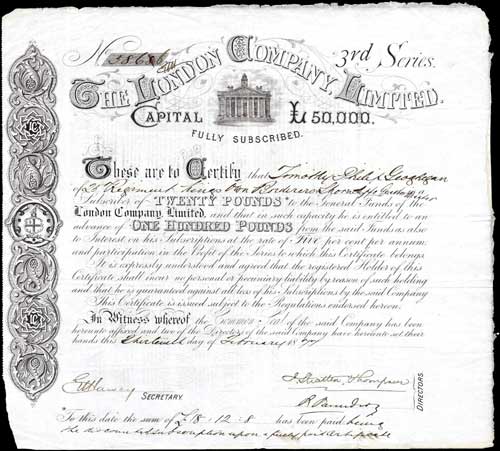 No
3rd Series.
THE LONDON COMPANY, LIMITED.
CAPITAL £50,000.
FULLY SUBSCRIBED.
These are to Certify that Timothy
of 25 Regiment Kings Own Borderers
Subscriber of TWENTY POUNDS to the General Funds of the
London Company, Limited, and that in such capacity he is entitled to an
advance of ONE HUNDRED POUNDS from the said Funds as also
to Interest on his Subscriptions at the rate of Five per cent per annum,
and participation in the Profit of the Series to which this Certificate belongs.
It is expressly understood and agreed that the registered Holder of this
Certificate shall incur no personal or pecuniary liability by reason of such holding
and that he is guaranteed against all loss of his Subscriptions by the said Company
This Certificate is issued subject to the Regulations endorsed hereon.
In Witness whereof the Common Seal of the said Company has been
hereunto affixed and two of the Directors of the said Company have hereunto set their
hands this Thirteenth day of February
SECRETARY.
Thompson
DIRECTORS.
To this date the sum of £18-12-8 has been paid, being
the discounted subscription upon a fully paid certificate